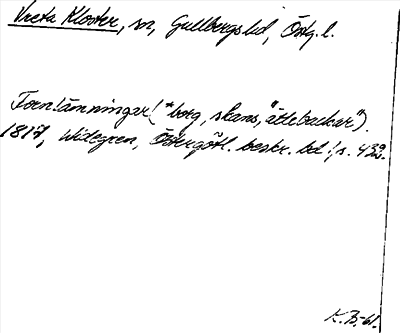 Vreta Kloster, sn, Gullbergs hd, Östg. l.
Fornlämningar! (*borg, skans, "ättebackar").
1817, Widegren, Östergötl. beskr. bd 1, s. 432.
K.B.-61.